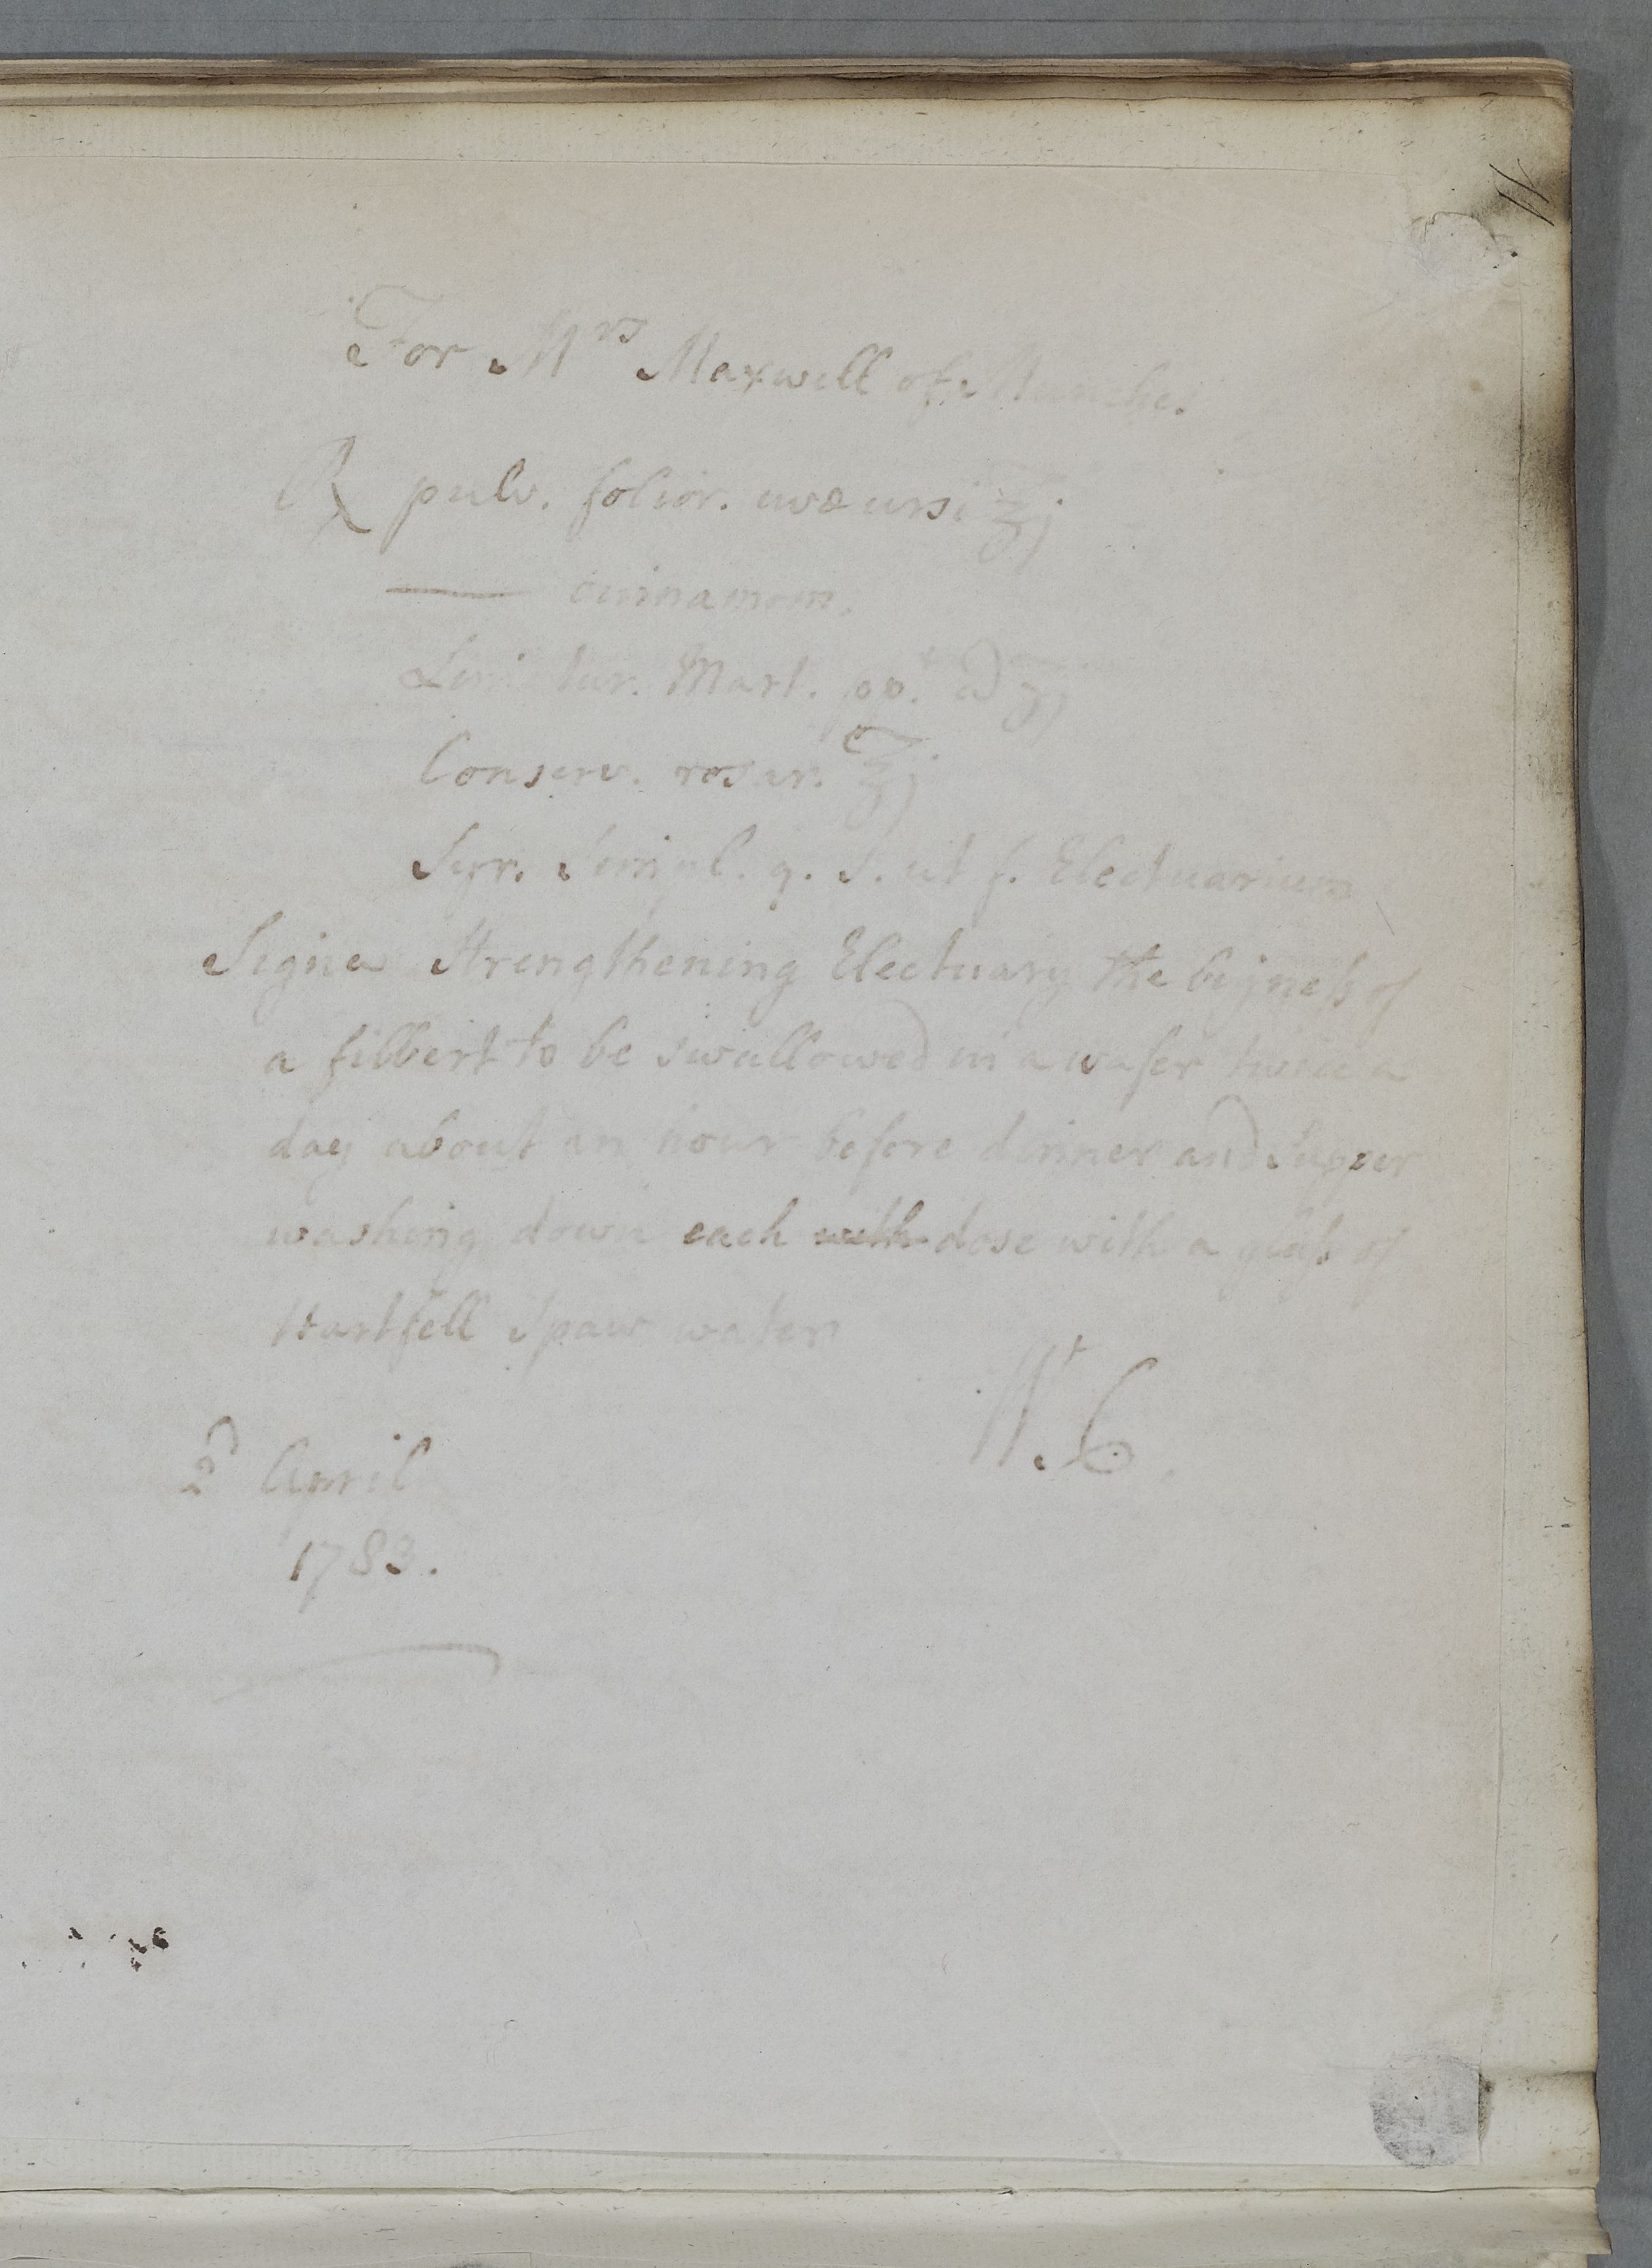 11
For Mrs Maxwell of Munches.
℞ pulv. folior. uvæ ursi ℥j
—— cinnamom.
Limatur. Mart. ppt. a ʒj
Conserv. rosar. ℥j
Syr. Simpl. q. s. ut f. Electuarium
Signa Strengthening Electuary the bigness of
a filbert to be swallowed in a wafer twice a
day about an hour before dinner and Supper
washing down each with dose with a glass of
Hartfell Spaw water
W. C.
2d April
1783.